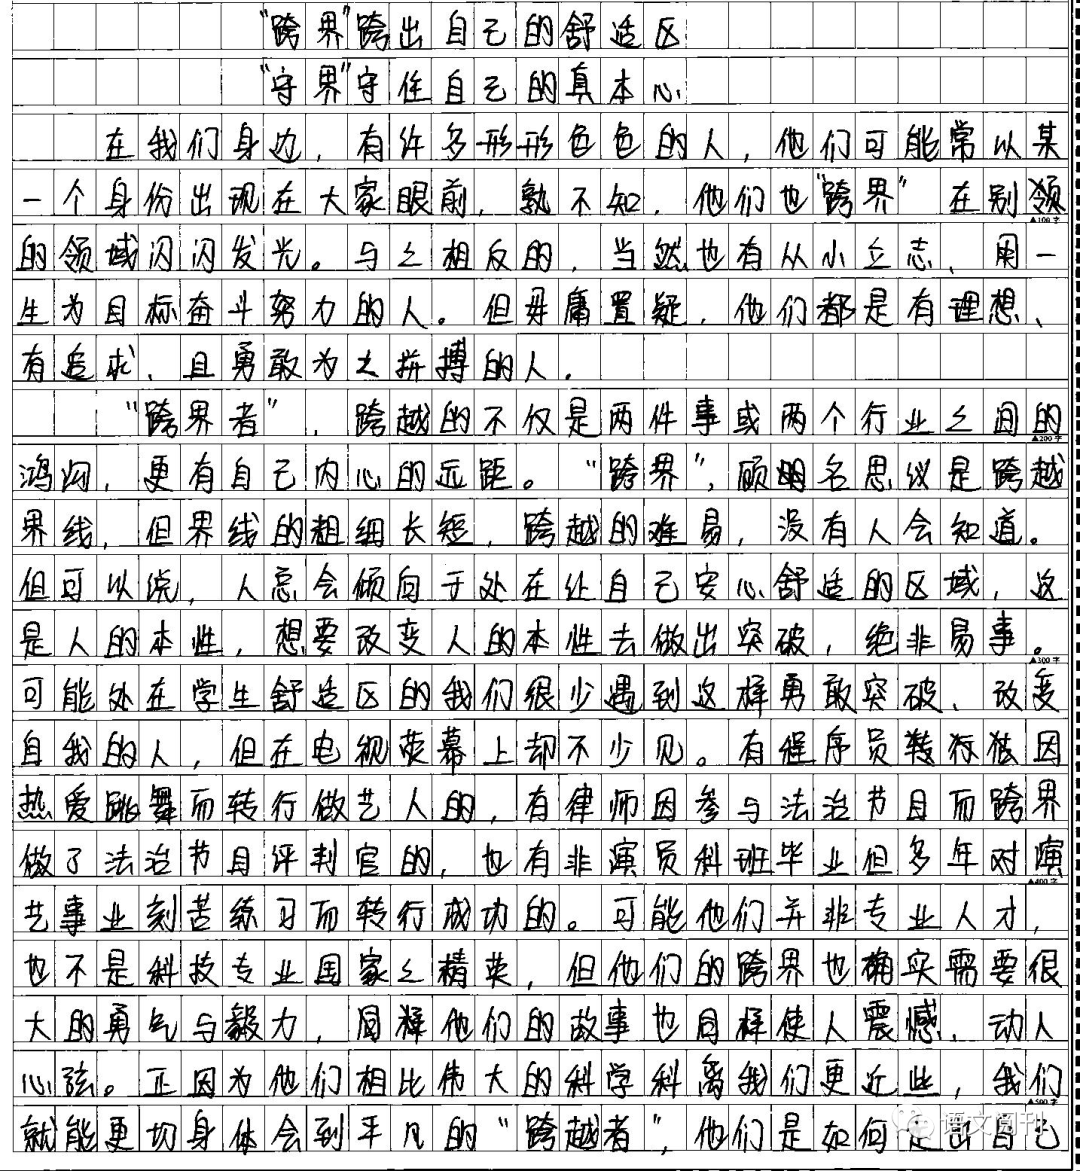 “跨界”跨出自己的舒适区
“守界”守住自己的真本心
在我们身边，有许多形形色色的人，他们可能常以某
一个身份出现在大家眼前，孰不知，他们也“跨界”在别领
▲100字
的领域闪闪发光。与之相反的，当然也有从小立志、用一
生为目标奋斗努力的人。但毋庸置疑，他们都是有理想、
有追求、且勇敢为之拼搏的人。
“跨界者”，跨越的不仅是两件事或两个行业之间的
▲200字
鸿沟，更有自己内心的远距。“跨界”，顾明名思议是跨越
界线，但界线的粗细长短，跨越的难易，没有人会知道。
但可以说，人总会倾向于处在让自己安心舒适的区域，这
是人的本性，想要改变人的本性去做出突破，绝非易事。
▲300字
可能处在学生舒适区的我们很少遇到这样勇敢突破、改变
自我的人，但在电视荧幕上却不少见。有程序员转行做因
热爱跳舞而转行做艺人的，有律师因参与法治节目而跨界
做了法治节目评判官的，也有非演员科班毕业但多年对演
▲400字
艺事业刻苦练习而转行成功的。可能他们并非专业人才，
也不是科技专业国家之精英，但他们的跨界也确实需要很
大的勇气与毅力，同样他们的故事也同样使人震憾、动人
心弦。正因为他们相比伟大的科学科离我们更近些，我们
▲500字
就能更切身体会到平凡的“跨越者”，他们是如何走出自己
语文阅刊